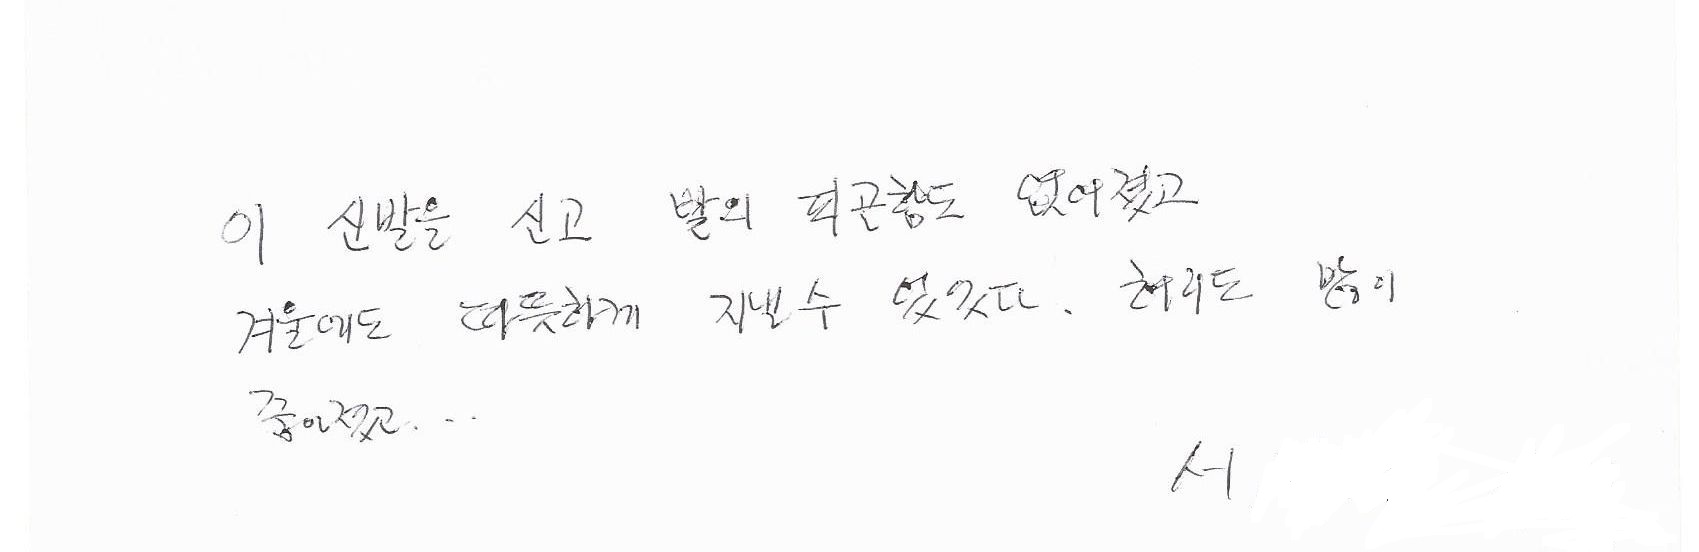 이 신발을 신고 발의 피곤함도 없어졌고
겨울에도 따뜻하게 지낼수 있었다. 허리도 많이
좋아졌고...
서